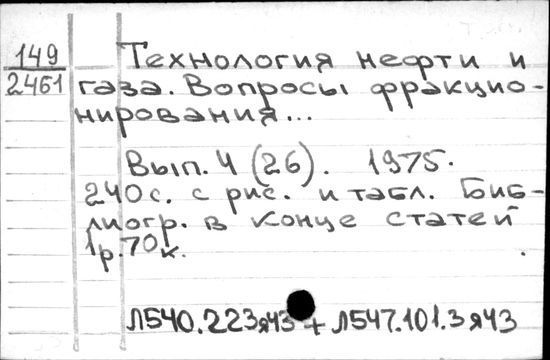 149
2461
Технология нефти и
газа. Вопросы фракцио-
нирования...
Вып. 4 (26). 1975.
240с. с рис. и табл. Биб-
лиогр. в конце статей
1р.70к.
Л540.223я43 + Л547.101.3я43